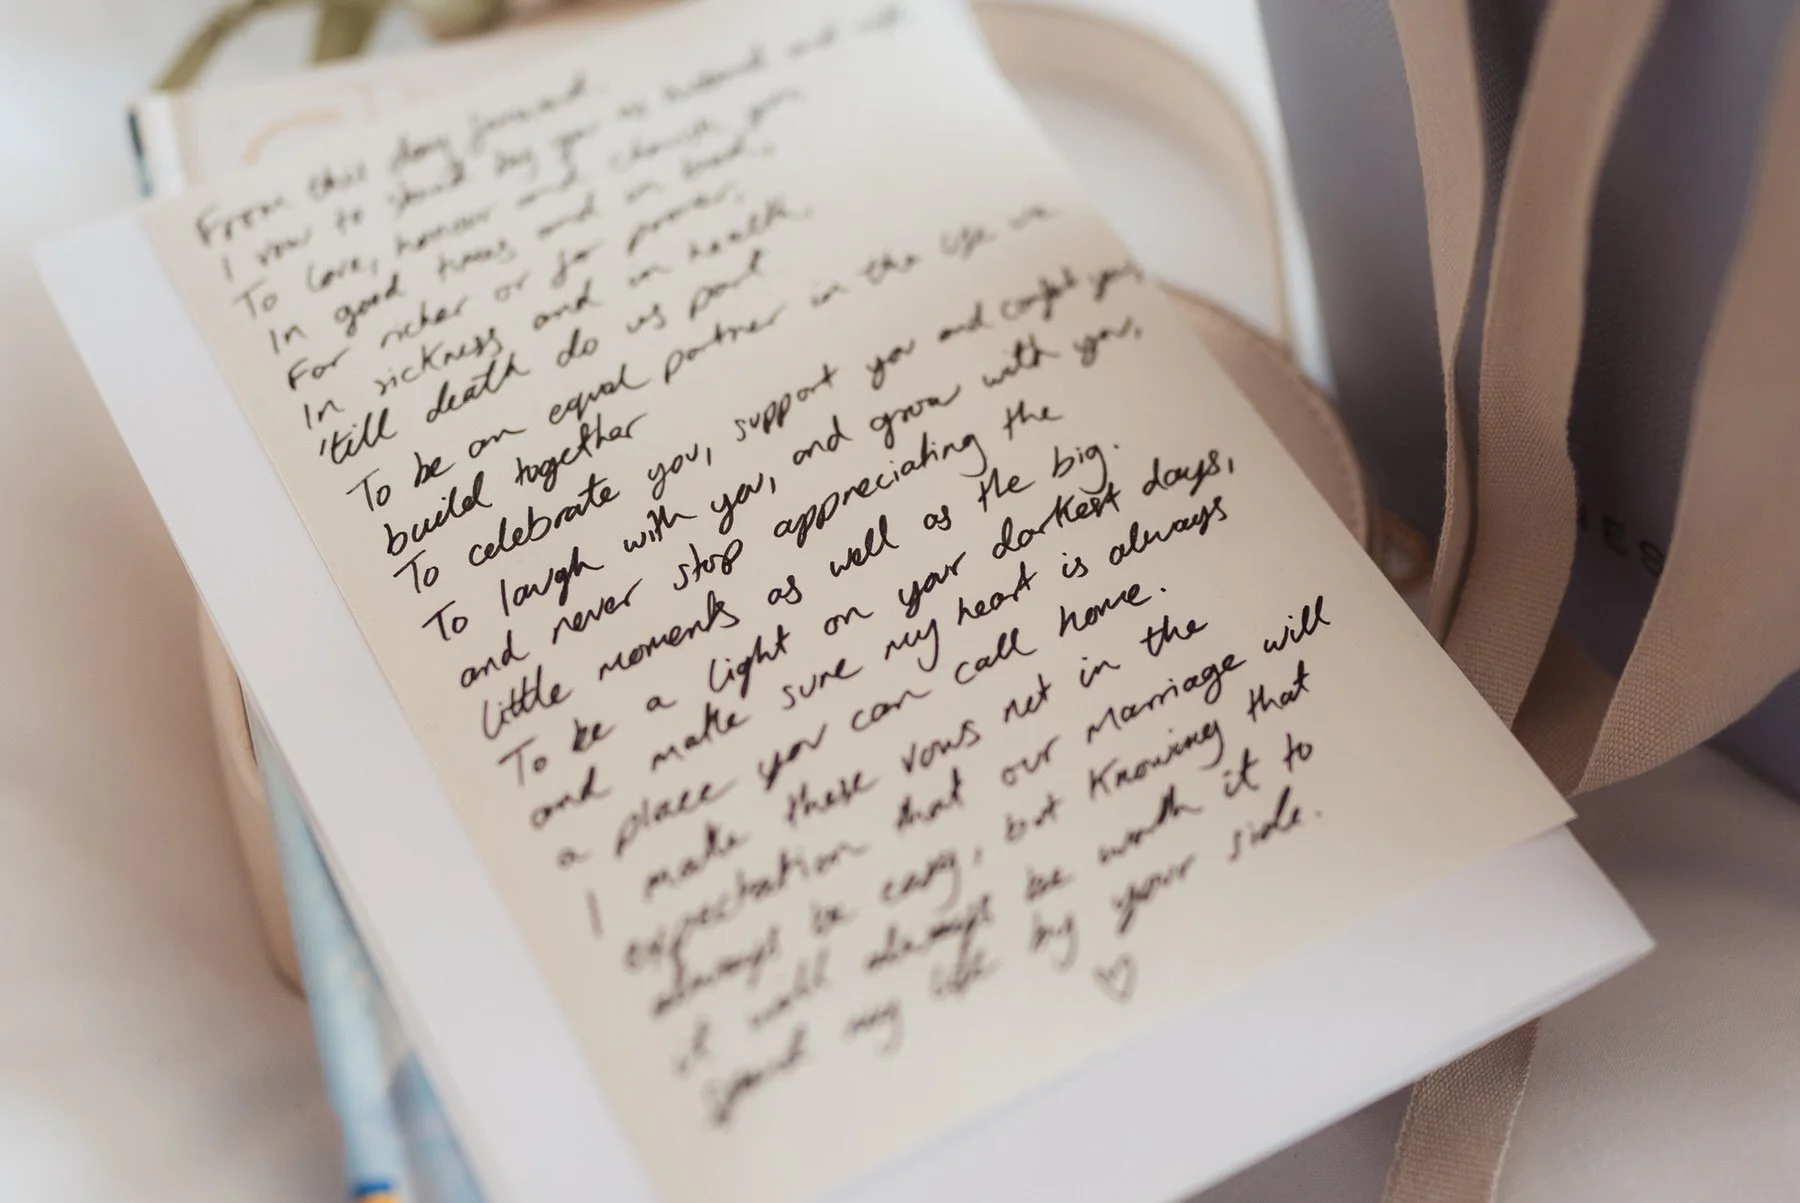 From this day forward
I vow to stand by you as husband and wife
To love, honour and cherish you
In good times and in bad,
For richer or for poorer,
In sickness and in health.
'till death do us part
To be an equal partner in the life we
build together
To celebrate you, support you and comfort you,
To laugh with you, and grow with you,
and never stop appreciating the
little moments as well as the big.
To be a light on your darkest days,
and make sure my heart is always
a place you can call home.
I make these vows not in the
expectation that our marriage will
always be easy, but knowing that
it will always be worth it to
spend my life by your side.